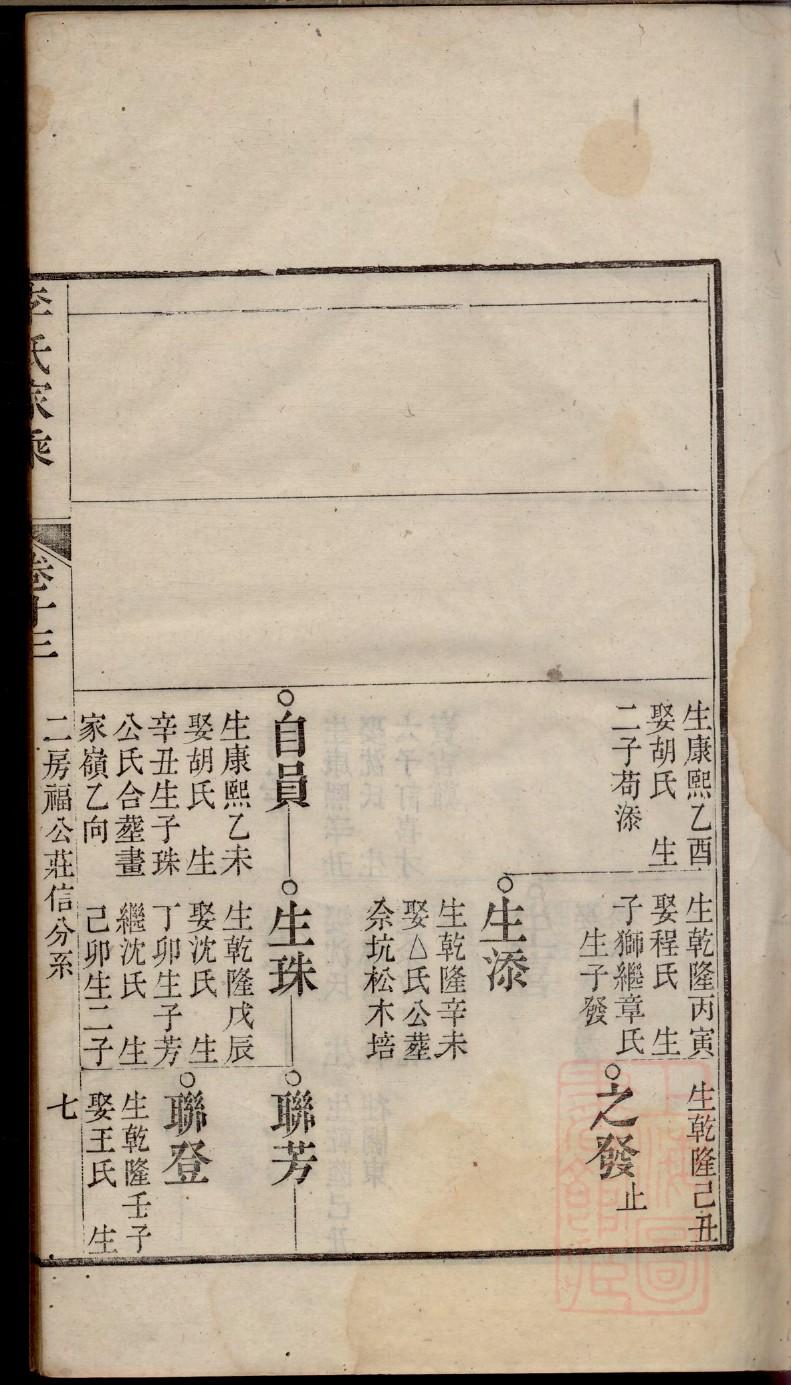 生康熙乙酉
娶胡氏　生
二子苟㴜
生乾隆丙寅
娶程氏　生
子獅繼章氏
生子發
生乾隆己丑
之發
止
生㴜
生乾隆辛未
娶△氏公塟
余坑松木培
自員
生康熙乙未
娶胡氏　生
辛丑生子珠
公氏合塟畫
家嶺乙向
生珠
生乾隆戊辰
娶沈氏　生
丁卯生子芳
繼沈氏　生
己卯生二子
聯芳
聯登
生乾隆壬子
娶王氏　生
李氏家乘
卷十三
二房福公莊信分系
七